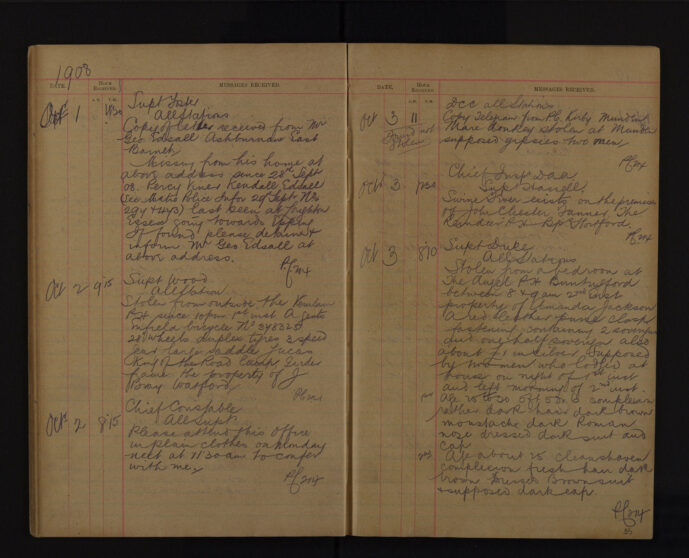 1908
DATE.
HOUR RECEIVED.
A.M. P.M.
MESSAGES RECEIVED.
Oct 1
Supt
All Stations
Copy of letter received from Mr
Geo Edsall Ashburnham East
Barnet
Missing from his home at
above address since 28th Sept
08. Percy Kendall Edsall
See Metro Police Infor 29th Sept Nos
last seen at
Essex going towards
If found please detain &
inform Mr Geo Edsall at
above address.
Oct 2 9/15
Supt Wood
All Station
Stolen from outside the
PH since 10pm 1st inst A gents
Enfield bicycle No 348325
28 wheels duplex tyres 3 speed
gear large saddle Lucas
King of the Road Lamp
frame the property of J
Watford
Oct 2 8/15
Chief Constable
All Supts
Please attend this office
in plain clothes on Monday
next at 11 30 am to confer
with me.
DATE.
HOUR RECEIVED.
A.M. P.M.
MESSAGES RECEIVED.
Oct 3 11
DCC all Stations
Copy Telegram from PC Kirby
Mare donkey stolen at
supposed gipsies two men
Oct 3
Chief Insp
Supt
Swine Fever exists on the premises
of John Chester Farmer The
PH Bp Stortford
Oct 3 8/10
Supt Duke
All Stations
Stolen from a bedroom at
The Angel PH Buntingford
between 8 & 9 am 2nd inst
property of Amanda Jackson
A red leather purse clasp
fastening containing 2 sovereigns
and one half sovereign also
about £1 in silver supposed
by two men who lodged at
house on night of 1st inst
and left morning of 2nd inst.
complexion
rather dark hair dark brown
moustache dark Roman
nose dressed dark suit and
cap
2nd Age about 25 cleanshaven
complexion fresh hair dark
brown Dressed Brown suit
& supposed dark cap.